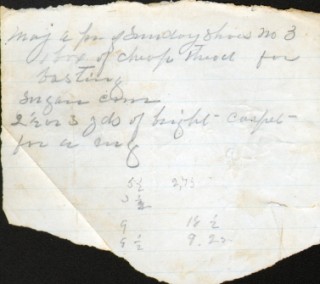 Maj a pr of Sunday Shoes No 3
1 box of cheap thread for
basting
Sugar corn
2 1/2 or 3 yds of bright carpet
for a rug
5 1/2 2,75
3 1/2
9 18 1/2
6 1/2 9.25